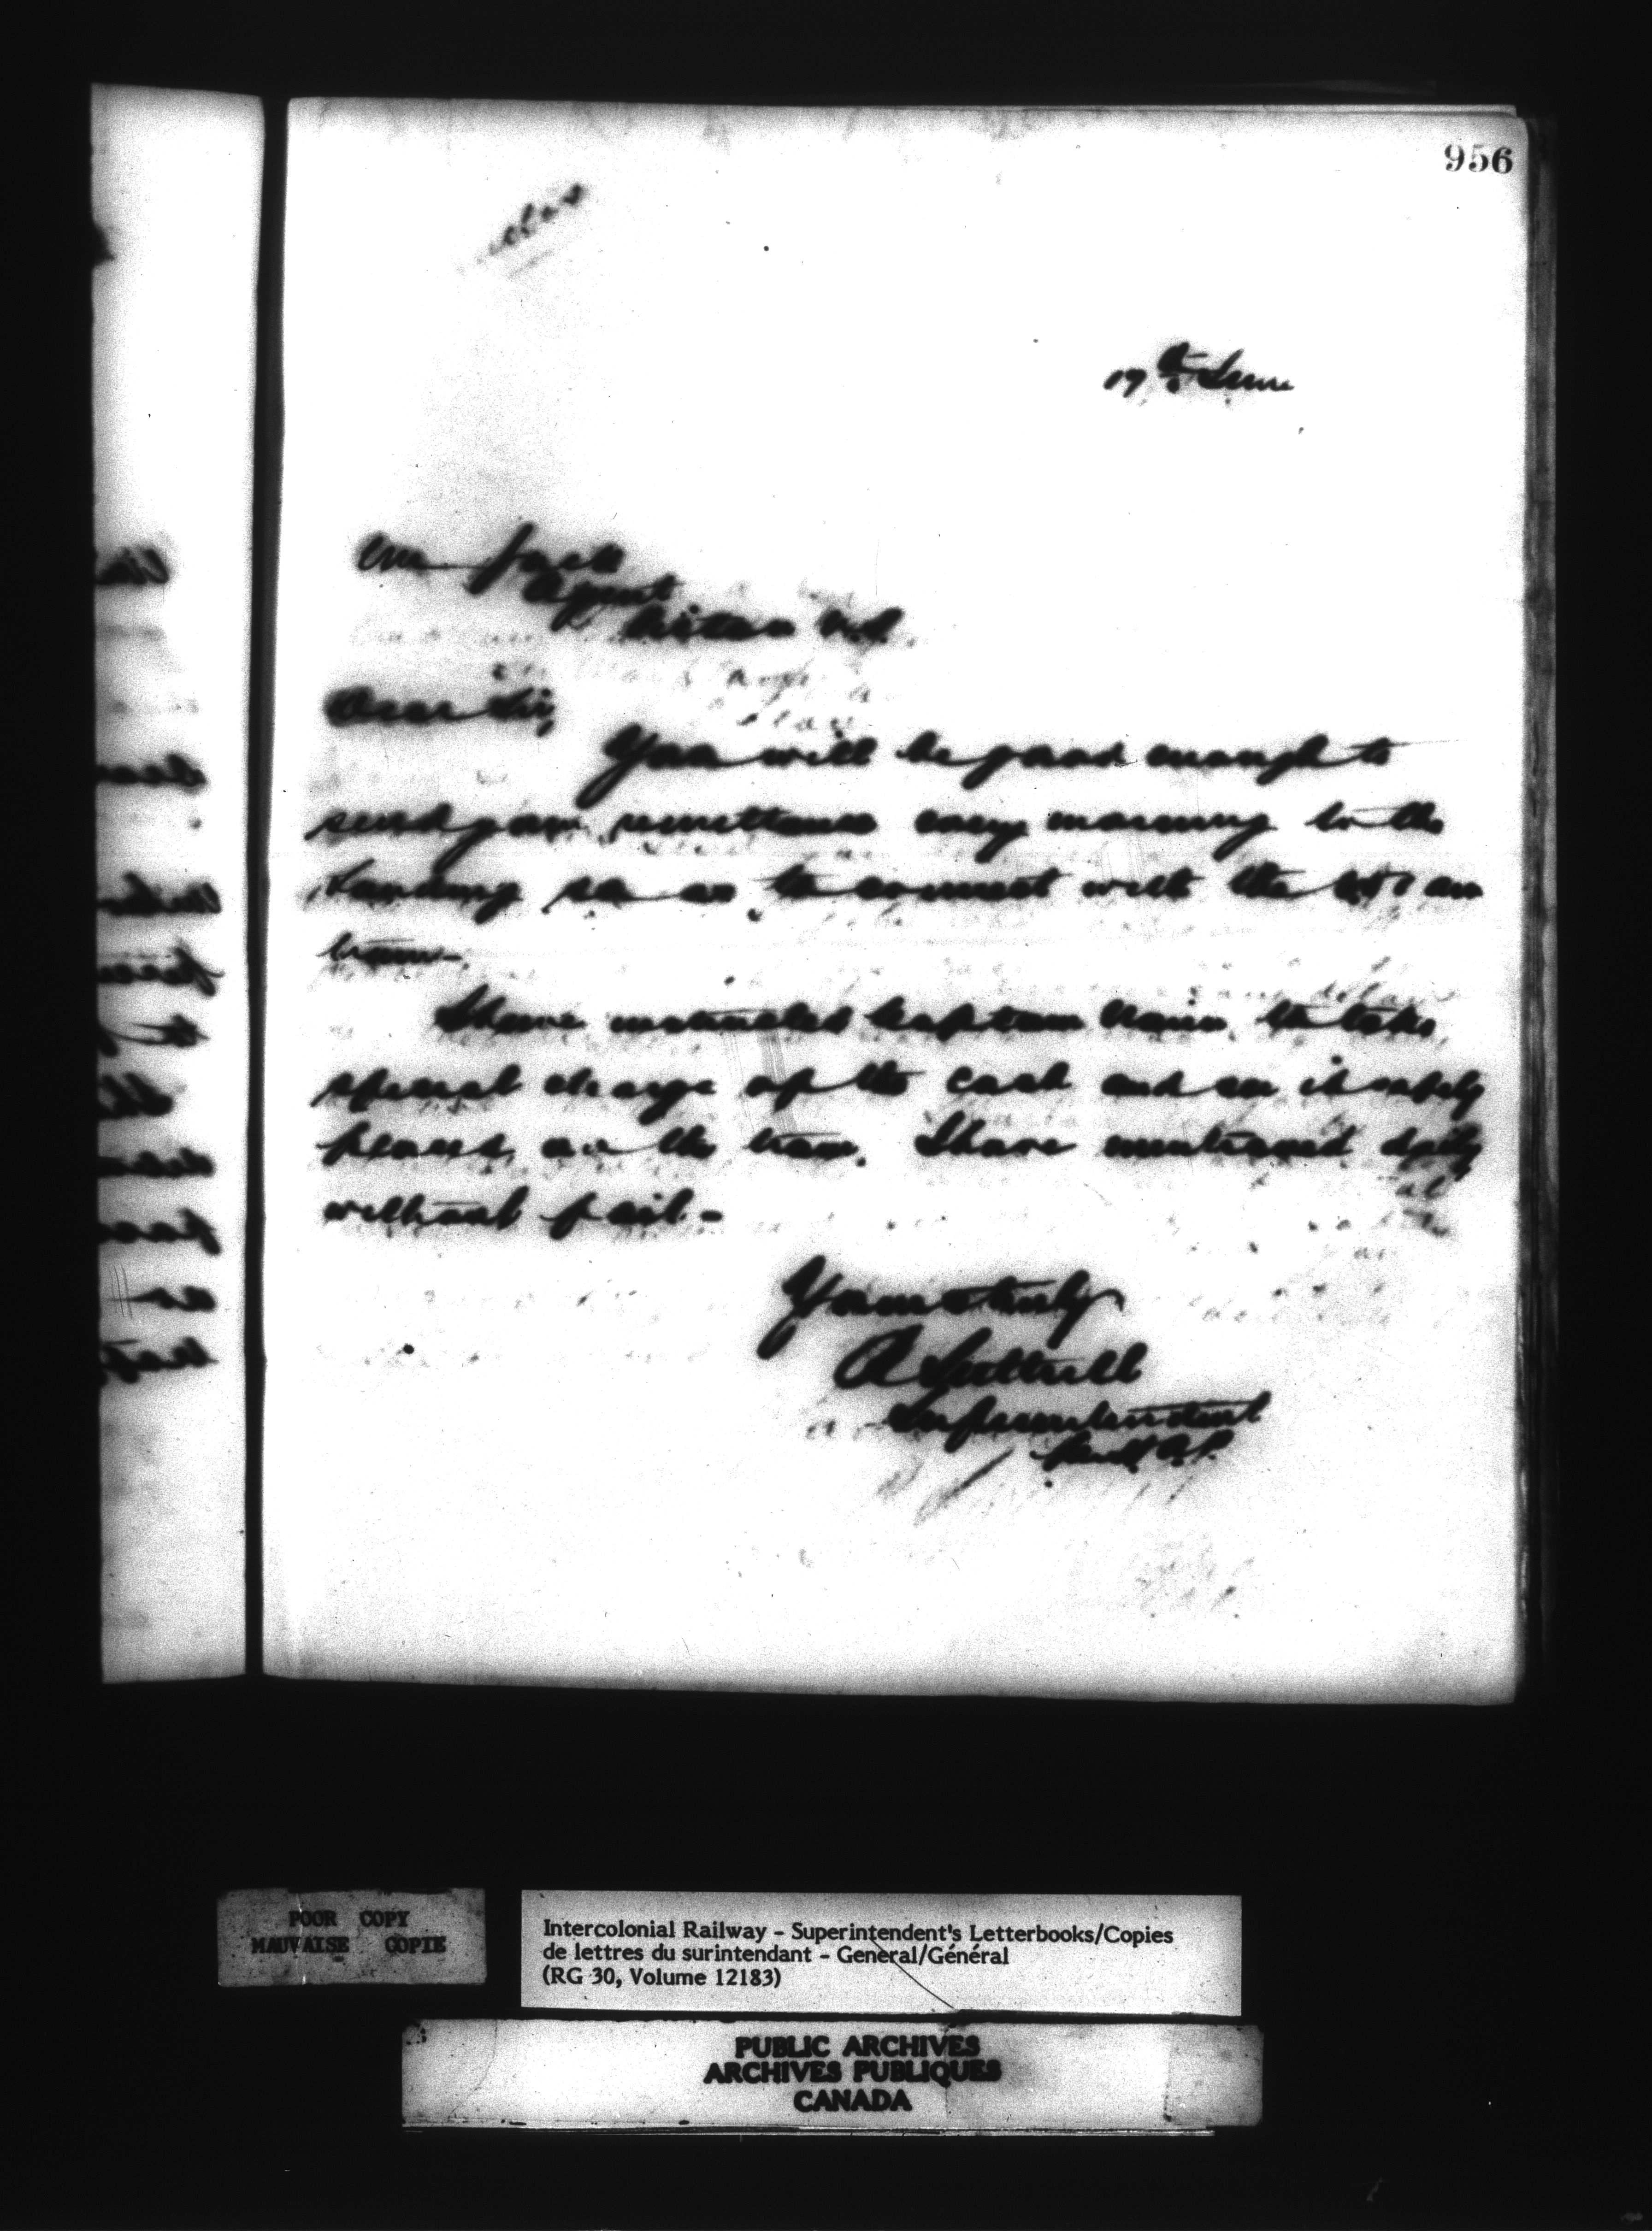 956
17th June
Mr Jack
Agent
Pictou N.S.
Dear Sir,
You will be good enough to
send your remittance every morning to the
Landing so as to connect with the am
train -
I have instructed Captain to take
special charge of the cash and see it safely
placed on the train. I have mentioned
without fail -
Yours truly
A Luttrell
Superintendent
POOR COPY
MAUVAISE COPIE
Intercolonial Railway - Superintendent's Letterbooks/Copies
de lettres du surintendant - General/Général
(RG 30, Volume 12183)
PUBLIC ARCHIVES
ARCHIVES PUBLIQUES
CANADA